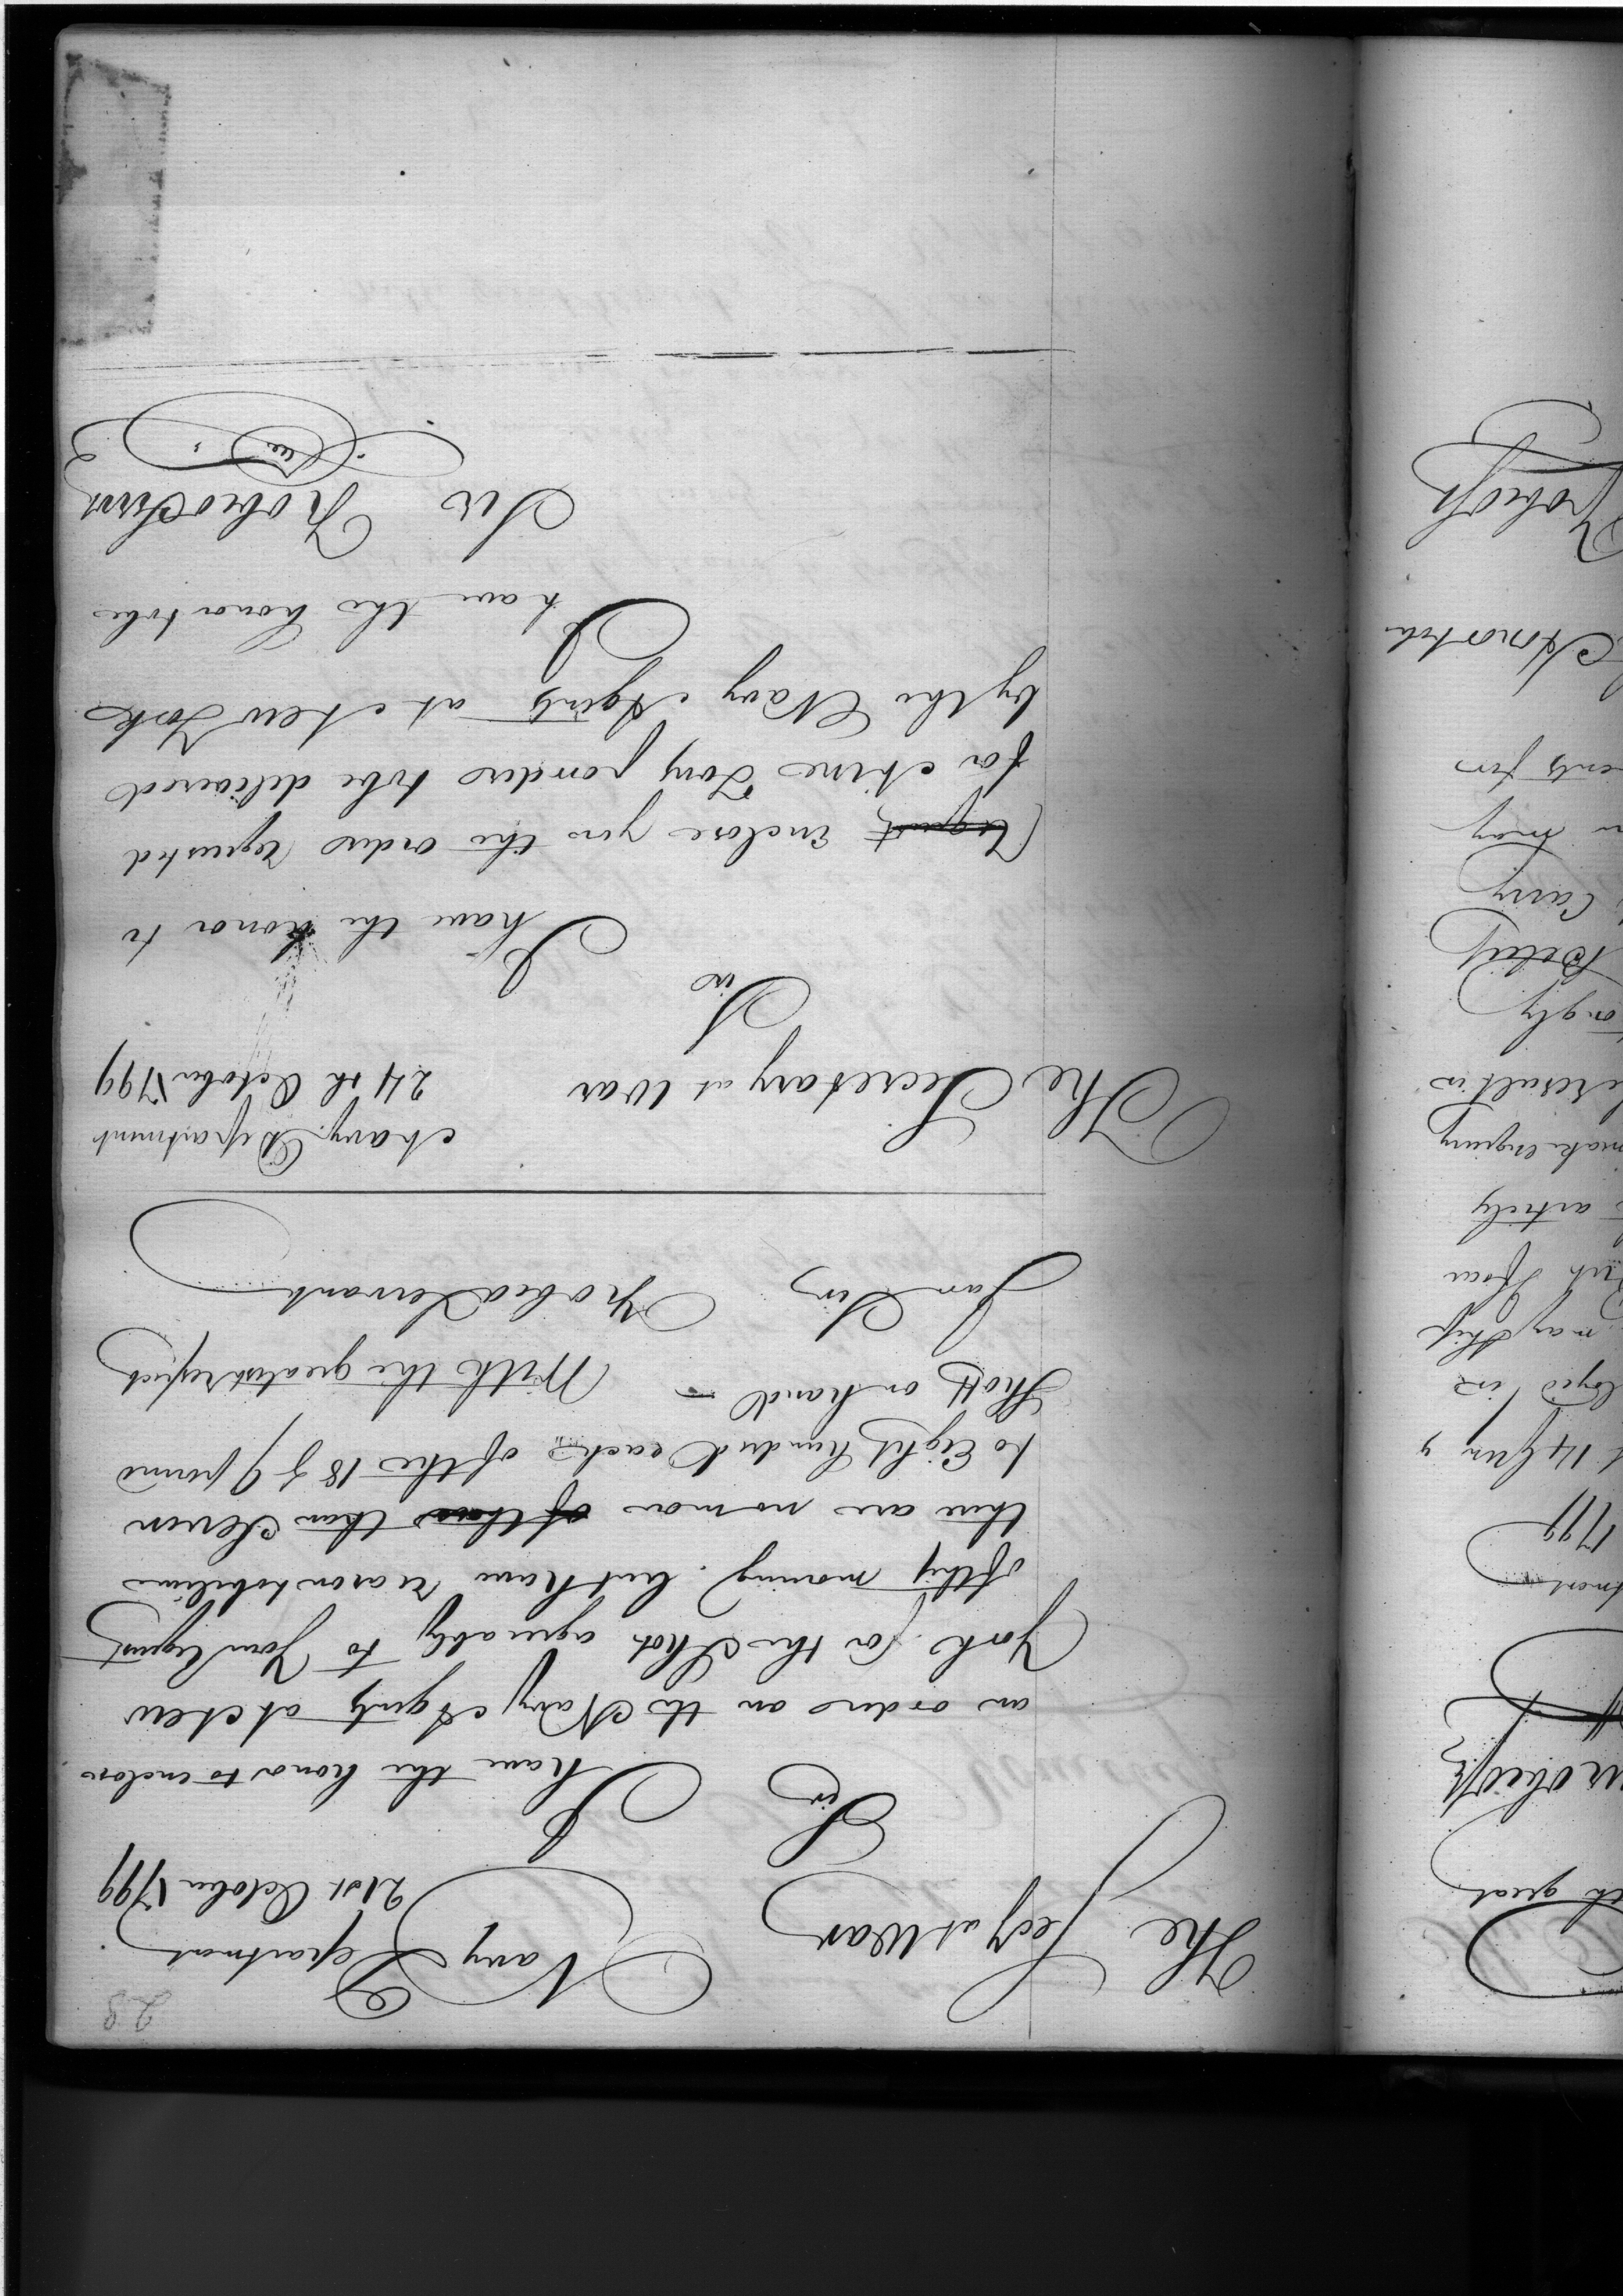 28
The Secy at War
Navy Department
21st October 1799
Sir
I have the honor to enclose
an order on the Navy Agents at New
York for the Shot agreeably to your request
of this morning. but have reason to believe
there are no more of those than Seven
to Eight hundred each of the 18 & 9 pound
Shott on hand — With the greatest respect
I am Sir Yr obed Servant
The Secretary at War
Navy Department
24th October 1799
Sir
I have the honor to
request inclose you the order requested
for Nine Long ponders to be delivered
by the Navy Agents at New York
I have the honor to be
Sir Yr obed Servt
th great
1799
14 Gun
may Ship
articles
make enquiry
result is
Carry
may
ents for